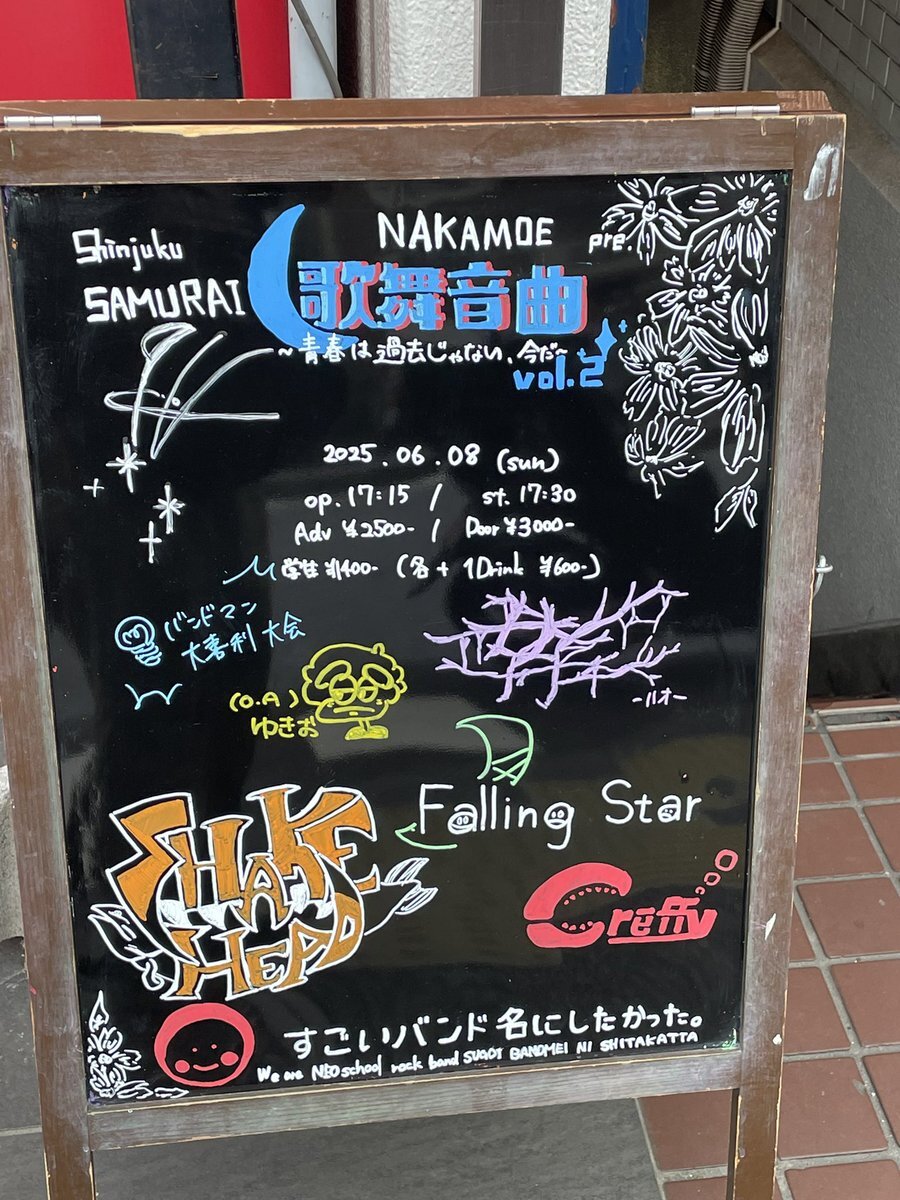 Shinjuku
SAMURAI
NAKAMOE pre.
歌舞音曲
~青春は過去じゃない、今だ~
vol.2
2025.06.08 (sun)
op.17:15 / st.17:30
Adv ¥2500- / Door ¥3000-
学生 ¥1400- (各+1Drink ¥600-)
バンドマン
大喜利大会
(O.A)
ゆきお
SHAKE
HEAD
Falling Star
Creffy
すごいバンド名にしたかった。
We are NEO school rock band SUGOI BANDMEI NI SHITAKATTA